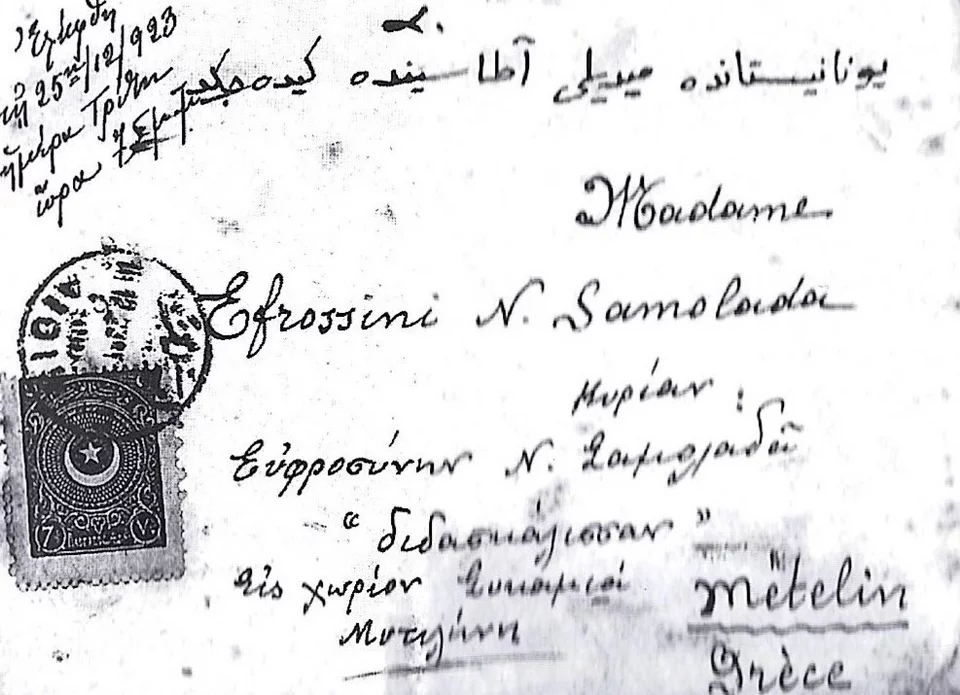 Ἐλήφθη
τῇ 25ῃ/12/923
ἡμέρα Τρίτη
ὥρα 7
يونانيستانده ميديللى آطا سينده كيده جكدر
Madame
Efrossini N. Samolada
Κυρίαν :
Εὐφροσύνην Ν. Σαμολαδᾶ
“ διδασκάλισσαν ”
Εἰς χωρίον Συκαμιά
Μυτιλήνη
Mételin
Grèce
7 ٧